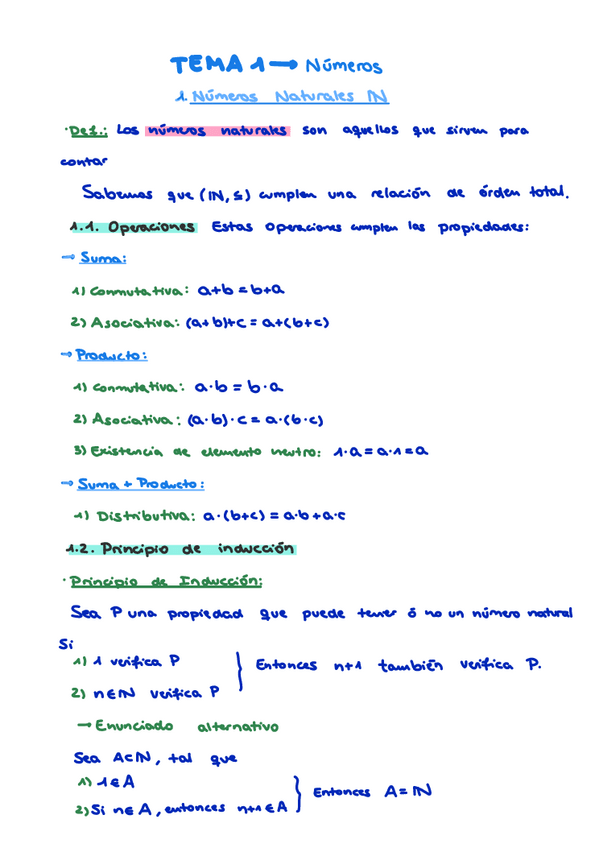 TEMA 1 → Números
1. Números Naturales ℕ
·Def.: Los números naturales son aquellos que sirven para
contar
Sabemos que (ℕ, ≤) cumplen una relación de órden total.
1.1. Operaciones Estas operaciones cumplen las propiedades:
→ Suma:
1) Conmutativa: a+b = b+a
2) Asociativa: (a+b)+c = a+(b+c)
→ Producto:
1) Conmutativa: a·b = b·a
2) Asociativa: (a·b)·c = a·(b·c)
3) Existencia de elemento neutro: 1·a = a·1 = a
→ Suma + Producto:
1) Distributiva: a·(b+c) = a·b + a·c
1.2. Principio de inducción
· Principio de Inducción:
Sea P una propiedad que puede tener ó no un número natural
Si
1) 1 verifica P
2) n∈ℕ verifica P } Entonces n+1 también verifica P.
→ Enunciado alternativo
Sea A⊂ℕ, tal que
1) 1∈A
2) Si n∈A, entonces n+1∈A } Entonces A=ℕ